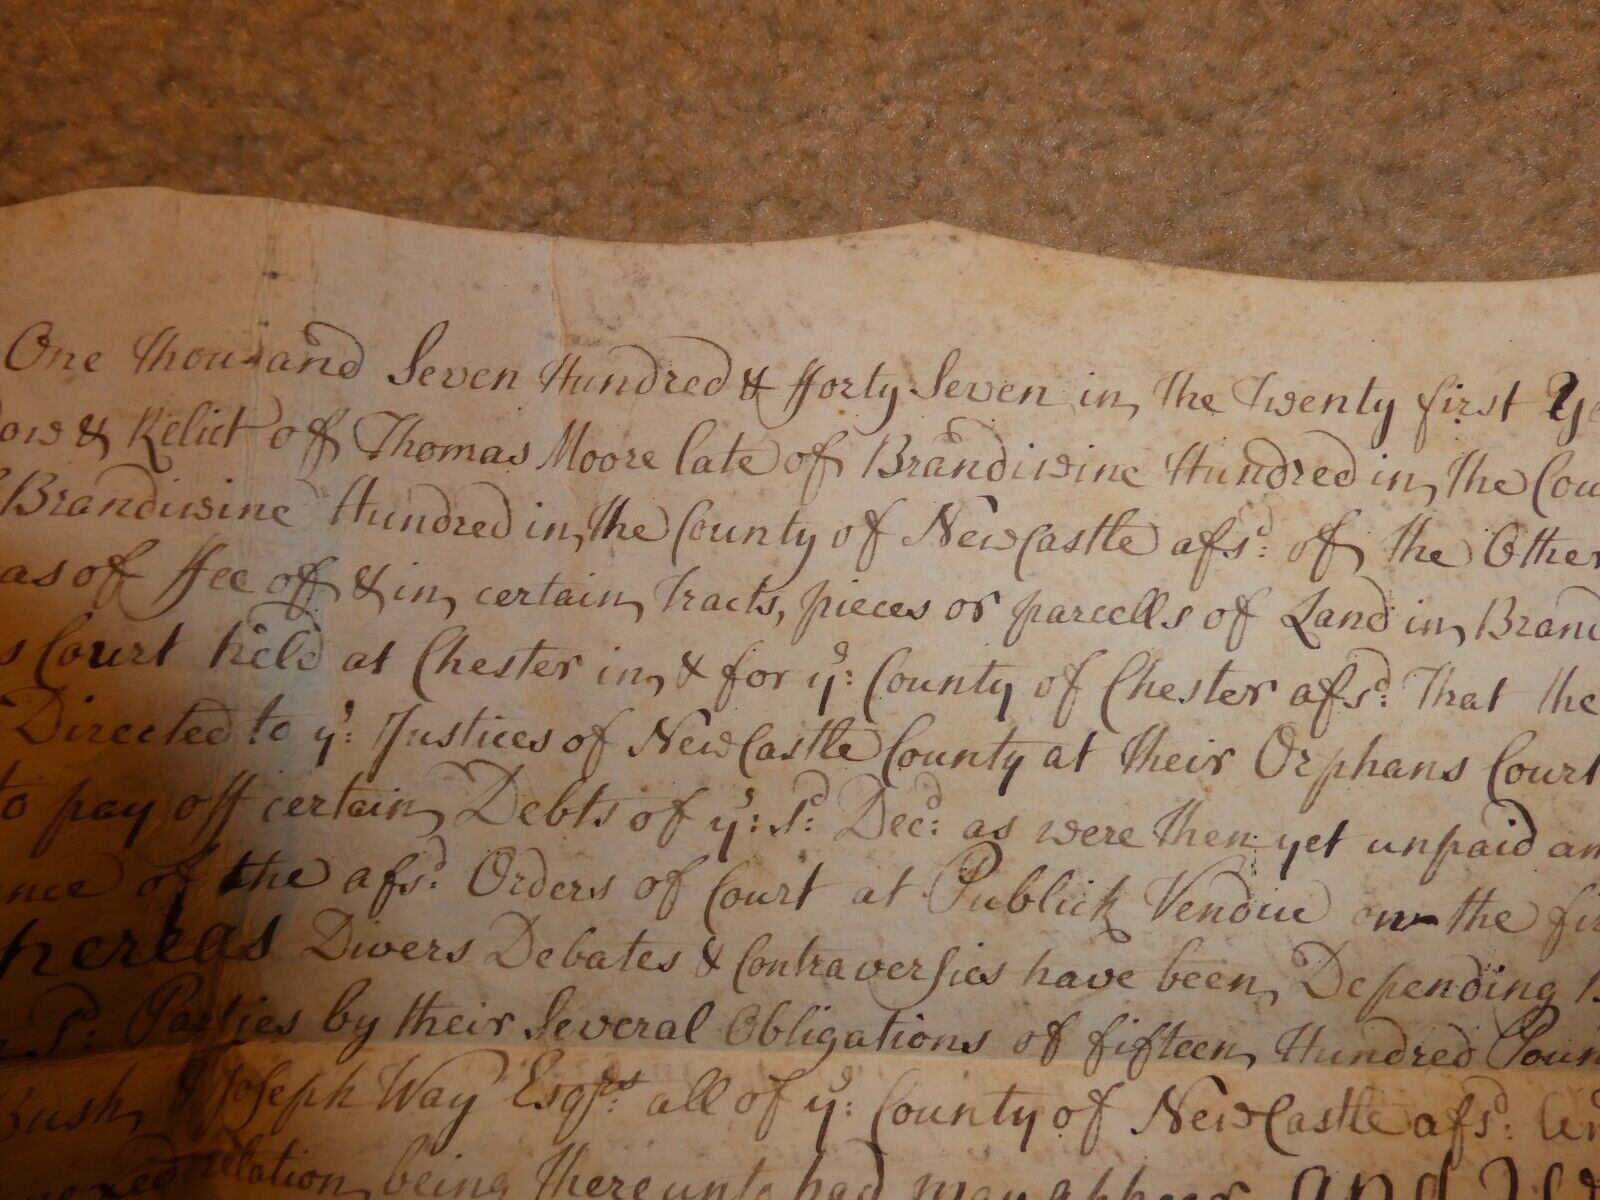 One Thousand Seven Hundred & fforty Seven in The Twenty first Ye
ow & Relict off Thomas Moore late of Brandiwine Hundred in The Cou
Brandiwine Hundred in The County of NewCastle afsd: of The Other
as of ffee off & in certain Tracts, pieces or parcells of Land in Brand
s Court held at Chester in & for ye: County of Chester afsd: That the
Directed to ye: Justices of NewCastle County at Their Orphans Court
to pay off certain Debts of ye: sd: Decd: as were Then yet unpaid an
nce of the afsd: Orders of Court at Publick Vendue on the fir
hereas Divers Debates & Contraversies have been Depending
sd: Parties by their Several Obligations of fifteen Hundred Poun
Bush & Joseph Way Esqrs: all of ye: County of NewCastle afsd:
nexed relation being Thereunto had may appear and